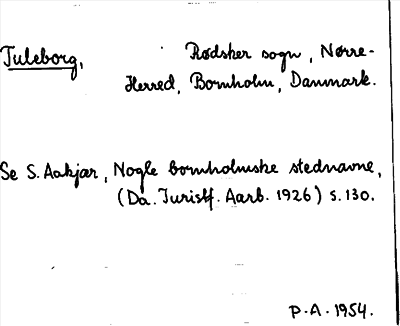 Tuleborg, Rødsker sogn, Nørre-
Herred, Bornholm, Danmark.
Se S. Aakjær, Nogle bornholmske stednavne,
(Da. Turistf. Aarb. 1926) s. 130.
P.A. 1954.